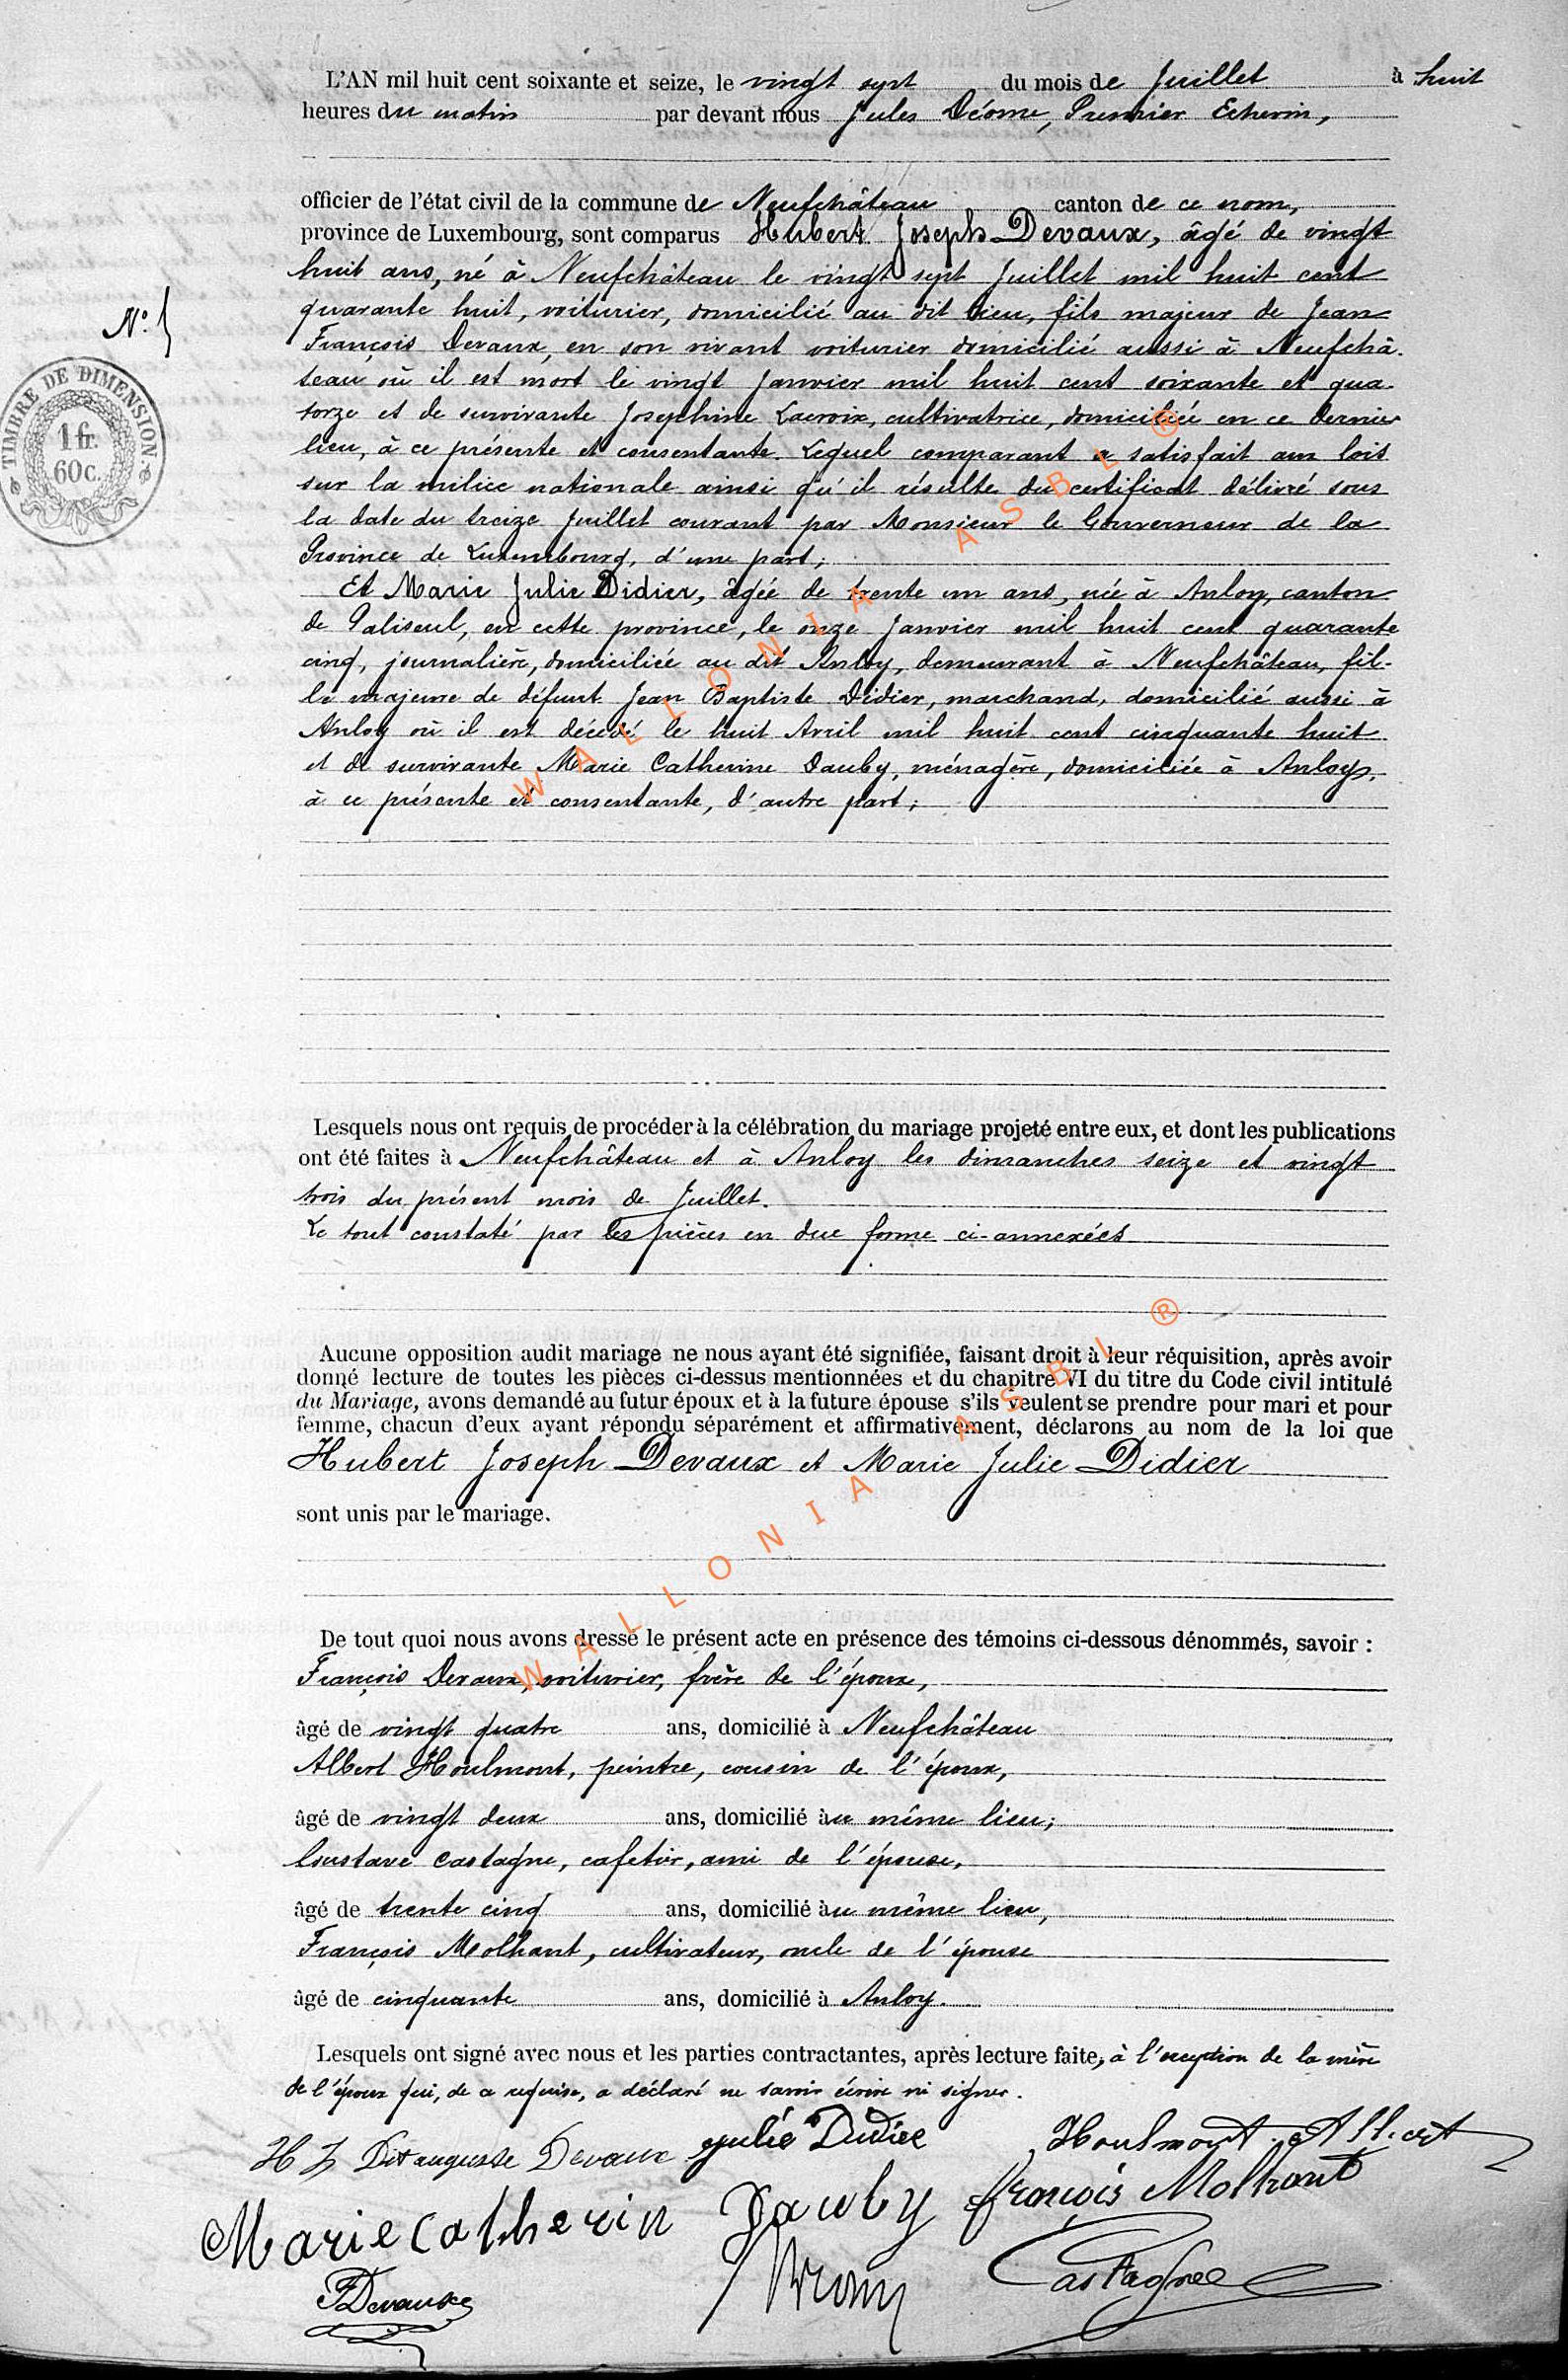 L'AN mil huit cent soixante et seize, le vingt sept du mois de Juillet à huit
heures du matin par devant nous Jules Déome, Premier Echevin,
officier de l'état civil de la commune de Neufchâteau canton de ce nom,
province de Luxembourg, sont comparus Hubert Joseph Devaux, âgé de vingt
huit ans, né à Neufchâteau le vingt sept Juillet mil huit cent
N°
quarante huit, voiturier, domicilié au dit lieu, fils majeur de Jean
François Devaux, en son vivant voiturier domicilié aussi à Neufchâ-
teau où il est mort le vingt Janvier mil huit cent soixante et qua-
TIMBRE DE DIMENSION
1 fr.
60 c.
torze et de survivante Josephine Lacroix, cultivatrice, domiciliée en ce dernier
lieu, à ce présente et consentante. Lequel comparant a satisfait aux lois
sur la milice nationale ainsi qu'il résulte du certificat délivré sous
la date du treize Juillet courant par Monsieur le Gouverneur de la
Province de Luxembourg, d'une part;
Et Marie Julie Didier, âgée de trente un ans, née à Anloy, canton
de Paliseul, en cette province, le onze Janvier mil huit cent quarante
cinq, journalière, domiciliée au dit Anloy, demeurant à Neufchâteau, fil-
le majeure de défunt Jean Baptiste Didier, marchand, domicilié aussi à
Anloy où il est décédé le huit Avril mil huit cent cinquante huit
et de survivante Marie Catherine Dauby, ménagère, domiciliée à Anloy,
à ce présente et consentante, d'autre part;
WALLONIA ASBL ®
Lesquels nous ont requis de procéder à la célébration du mariage projeté entre eux, et dont les publications
ont été faites à Neufchâteau et à Anloy les dimanches seize et vingt
trois du présent mois de Juillet.
Le tout constaté par les pièces en due forme ci-annexées
Aucune opposition audit mariage ne nous ayant été signifiée, faisant droit à leur réquisition, après avoir
donné lecture de toutes les pièces ci-dessus mentionnées et du chapitre VI du titre du Code civil intitulé
du Mariage, avons demandé au futur époux et à la future épouse s'ils veulent se prendre pour mari et pour
femme, chacun d'eux ayant répondu séparément et affirmativement, déclarons au nom de la loi que
Hubert Joseph Devaux et Marie Julie Didier
sont unis par le mariage.
WALLONIA ASBL ®
De tout quoi nous avons dressé le présent acte en présence des témoins ci-dessous dénommés, savoir :
François Devaux, voiturier, frère de l'époux,
âgé de vingt quatre ans, domicilié à Neufchâteau
Albert Houlmont, peintre, cousin de l'époux,
âgé de vingt deux ans, domicilié au même lieu;
Gustave Castagne, cafetier, ami de l'épouse,
âgé de trente cinq ans, domicilié au même lieu,
François Molhant, cultivateur, oncle de l'épouse
âgé de cinquante ans, domicilié à Anloy.
Lesquels ont signé avec nous et les parties contractantes, après lecture faite, à l'exception de la mère
de l'époux qui, de ce requise, a déclaré ne savoir écrire ni signer.
H J Dit auguste Devaux julie Didier Houlmont Albert
Marie Catherin Dauby françois Molhant
FDevaux Castagne